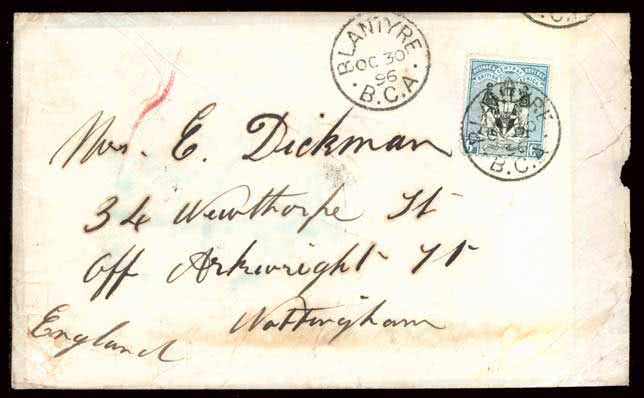 B.C.A.
BLANTYRE
OC 30
96
B.C.A.
BRITISH CENTRAL AFRICA
BLANTYRE
B.C.A
Mrs. E. Dickman
34 Newthorpe St
Off Arkwright St
Nottingham
England